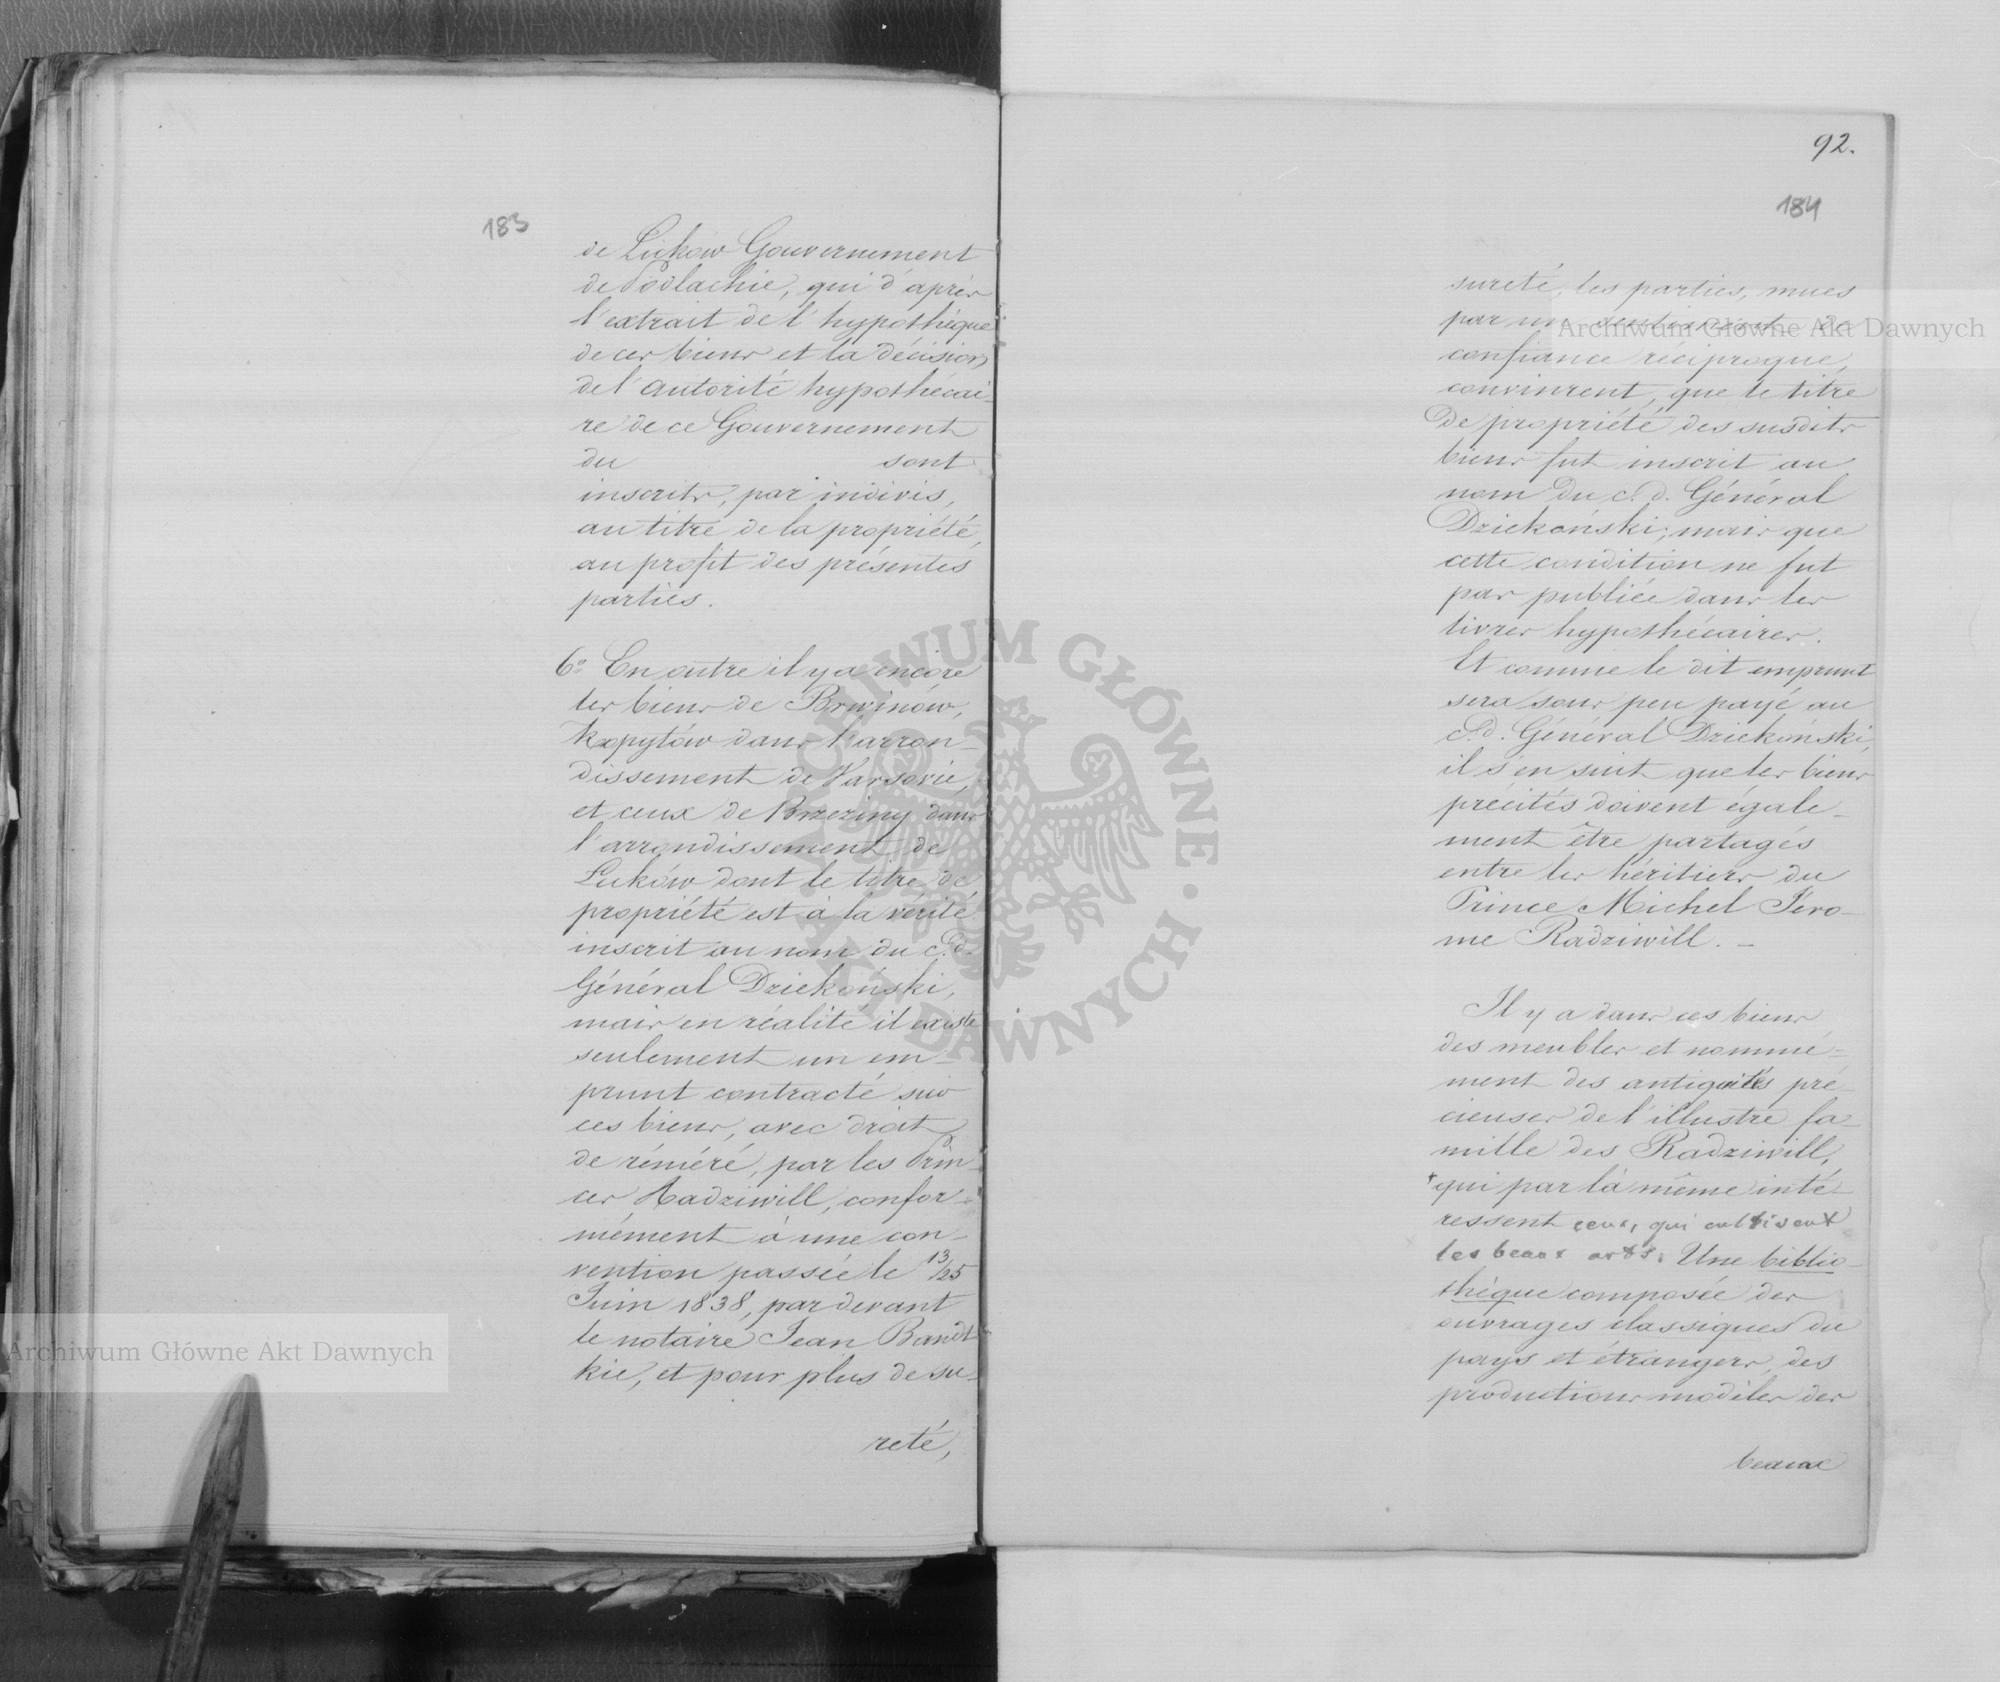 183
de Luków Gouvernement
de Podlachie, qui d'après
l'extrait de l'hypothèque
de ces biens et la décision
de l'autorité hypothécai-
re de ce Gouvernement
du sont
inscrits, par indivis,
au titre de la propriété,
au profit des présentes
parties.
6° En outre il y a encore
les biens de Brwinów,
Kopytów dans l'arron-
dissement de Varsovie,
et ceux de Brzeziny dans
l'arrondissement de
Luków dont le titre de
propriété est à la vérité
inscrit au nom du c.d.
Général Dziekoński,
mais en réalité il existe
seulement un em-
prunt contracté sur
ces biens, avec droit
de réméré, par les Prin-
ces Radziwill, confor-
mément à une con-
vention passée le 13/25
Juin 1838, par devant
le notaire Jean Bandt
kie, et pour plus de su-
reté,
92.
184
sureté, les parties, mues
par un sentiment de
confiance réciproque,
convinrent, que le titre
de propriété des susdits
biens fut inscrit au
nom du c.d. Général
Dziekoński; mais que
cette condition ne fut
pas publiée dans les
livres hypothécaires.
Et comme le dit emprunt
sera sous peu payé au
c.d. Général Dziekoński,
il s'en suit que les biens
précités doivent égale-
ment être partagés
entre les héritiers du
Prince Michel Jéro-
me Radziwill. –
Il y a dans ces biens
des meubles et nommé-
ment des antiquités pré-
cieuses de l'illustre fa-
mille des Radziwill,
qui par là même inté-
ressent ceux, qui cultivent
les beaux arts. Une biblio-
thèque composée des
ouvrages classiques du
pays et étrangers, des
productions modèles des
beaux
Archiwum Główne Akt Dawnych
Archiwum Główne Akt Dawnych
ARCHIWUM GŁÓWNE AKT DAWNYCH